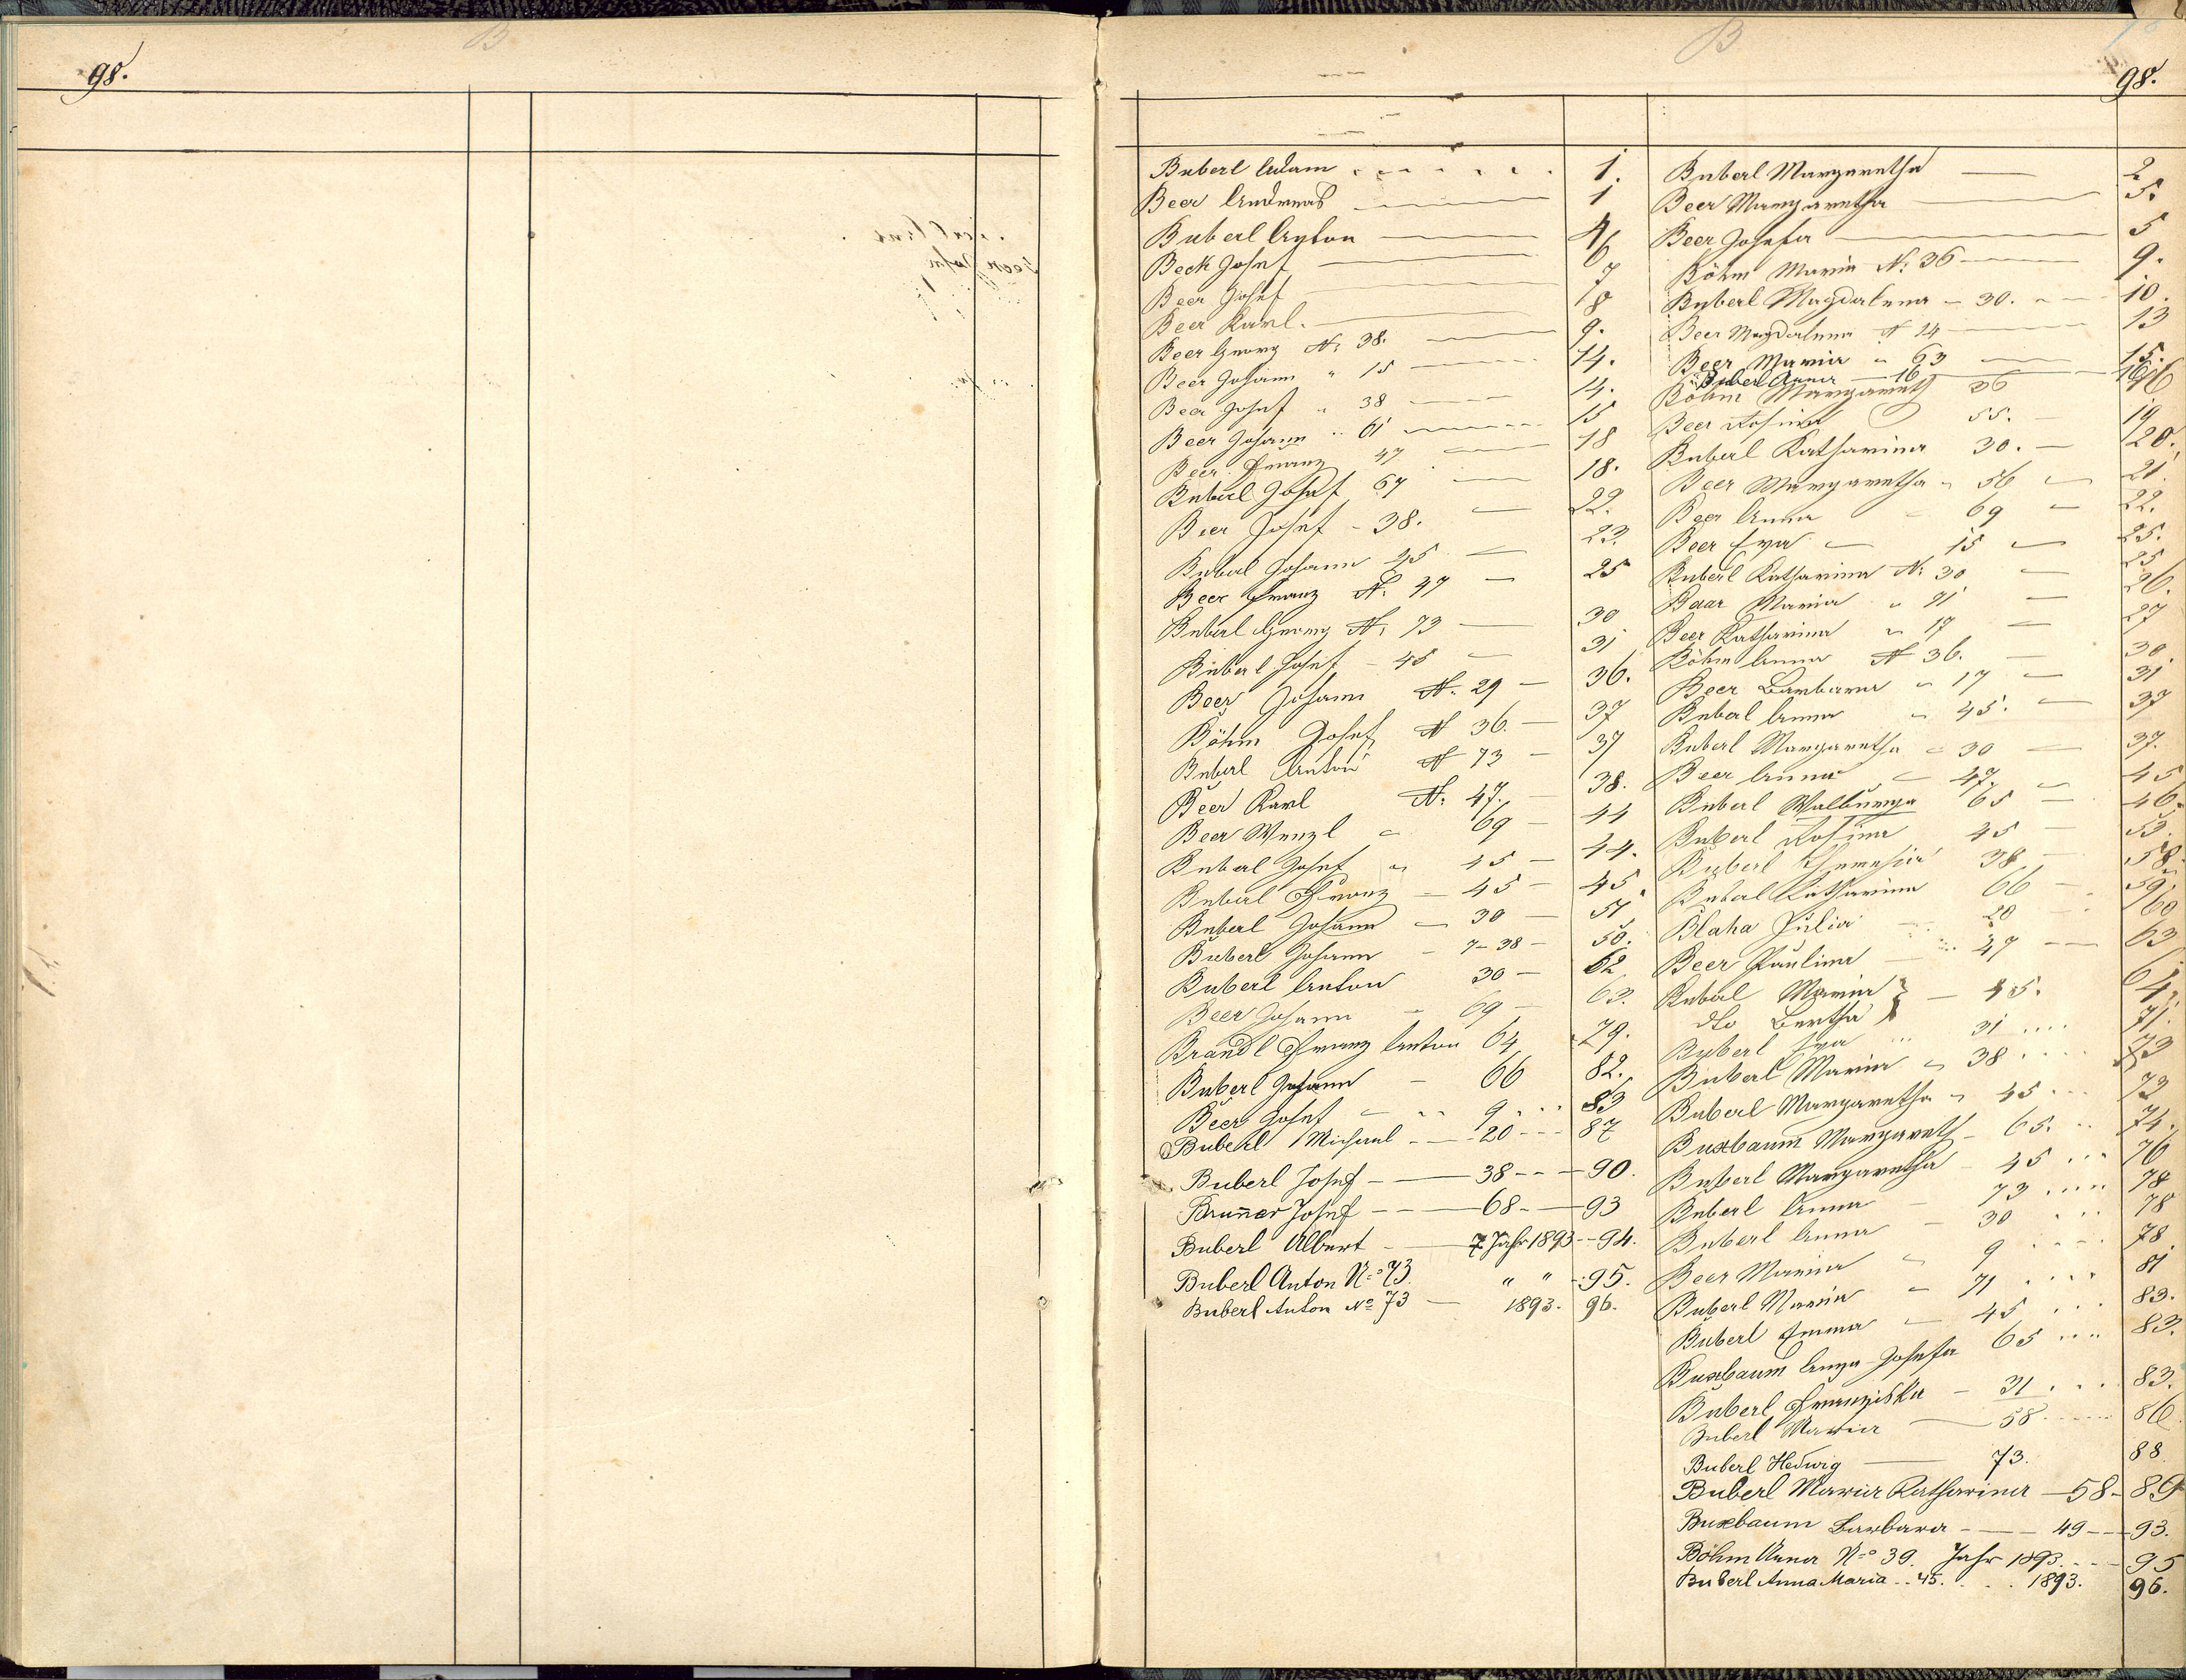 B
98.
B
98.
Buberl Adam 1.
Beer Andreas 1
Buberl Anton 4
Beck Josef 6
Beer Josef 7
Beer Karl. 8
Beer Georg N: 38. 9.
Beer Johann " 15 14.
Beer Josef " 38 14.
Beer Johann " 61 15
Beer Franz 47 18
Buberl Josef 67 18.
Beer Josef - 38. 22.
Buberl Johann 45 23.
Beer Franz N. 47 25
Buberl Georg N: 73 30
Buberl Josef - 45 31
Beer Johann N. 29 36.
Böhm Josef N 36. 37
Buberl Anton N 73 37
Beer Karl N: 47. 38.
Beer Wenzl " 69 44
Buberl Josef " 45 44.
Buberl Franz - 45 45.
Buberl Johann - 30 51
Buberl Johann - 7-38 - 58.
Buberl Anton 30 - 62
Beer Johann - 69 - 63.
Brandl Franz Anton 64 79.
Buberl Johann - 66 82.
Beer Josef " 9 83
Buberl Michael - 20 - 87
Buberl Josef - 38 - 90.
Brun̄er Josef - 68 - 93
Buberl Albert - 7 Jahr 1893 - 94.
Buberl Anton No 73 " " 95.
Buberl Anton No 73 - 1893. 96.
Buberl Margaretha 2
Beer Margaretha 5.
Beer Josefa 5
Böhm Maria N: 36 9.
Buberl Magdalena - 30. 10.
Beer Magdalena N 14 13
Beer Maria " 63 15.
Buberl Anna 16 16
Böhm Margareth 36 16
Beer Rosina 55. 19
Buberl Katharina 30. 20.
Beer Margaretha " 56 21
Beer Anna - 69 22.
Beer Eva - 15 25.
Buberl Katharina N: 30 25
Baar Maria " 71 26.
Beer Katharina " 17 27
Böhm Anna N 36. 30.
Beer Barbara " 17 31
Buberl Anna " 45. 37
Buberl Margaretha " 30 37.
Beer Anna " 47. 45
Buberl Walburga 65 46.
Buberl Rosina 45 53.
Buberl Theresia 38 58.
Buberl Katharina 66 59
Blaha Julia 20 60
Beer Paulina 47 63
Buberl Maria } - 45. 64.
dto Bertha }
Buberl Eva 31 71.
Buberl Maria " 38 73
Buberl Margaretha " 45 73
Buxbaum Margareth - 65. 74.
Buberl Margaretha - 45 76
Buberl Anna - 73 78
Buberl Anna - 30 78
Beer Maria " 9 78
Buberl Maria " 71 81
Buberl Emma " 45 83.
Buxbaum Anna Josefa 65 83.
Buberl Franziska - 31 83.
Buberl Maria 58 86.
Buberl Hedwig 73. 88.
Buberl Maria Katharina - 58 - 89
Buxbaum Barbara - 49 - 93.
Böhm Anna No 39. Jahr 1893. - 95
Buberl Anna Maria .. 45. . . 1893. 96.